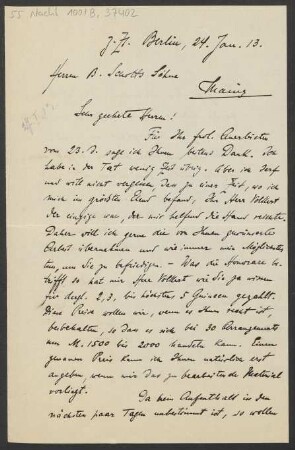 55 Nachl 100/B, 37402
z. Zt. Berlin, 24. Jan. 13.
Herrn B. Schotts Söhne
Mainz
Sehr geehrte Herren!
Für Ihr frdl. Anerbieten
vom 23. D. sage ich Ihnen bestens Dank. Ich
habe in der Tat wenig Zeit übrig. Aber ich darf
und will nicht vergessen, dass zu einer Zeit, wo ich
mich in größter Elend befand, Ihr Herr Volkert
der einzige war, der mir helfend die Hand reichte.
Daher will ich gerne die von Ihnen gewünschte
Arbeit übernehmen und wie immer mein Möglichstes
tun, um Sie zu befriedigen. – Was die Honorare be-
trifft so hat mir Herr Volkert, wie Sie ja wissen
für dergl. 2, 3, bis höchstens 5 Guineen gezahlt.
Diese Preise wollen wir, wenn es Ihnen recht ist,
beibehalten, so dass es sich bei 30 Arrangements
um M. 1500 bis 2000 handeln kann. Einen
genauen Preis kann ich Ihnen natürlich erst
angeben, wenn mir das zu bearbeitende Material
vorliegt.
Da mein Aufenthalt in den
nächsten paar Tagen unbestimmt ist, so wollen